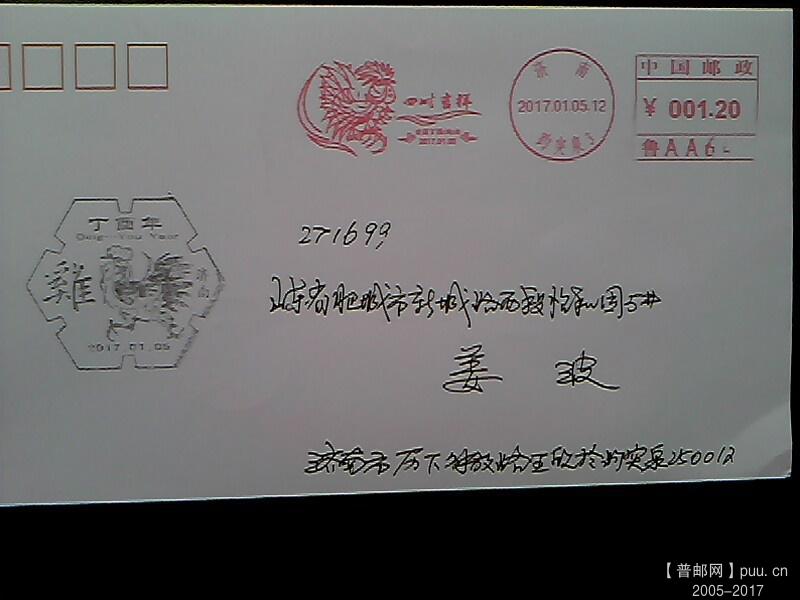 四时吉祥
2017.01.05
济南
2017.01.05.12
趵突泉3
中国邮政
¥ 001.20
鲁AA6
丁酉年
Ding-You Year
雞
济南
2017.01.05
271699
山东省肥城市新城路西段怡和园5#
姜 波
济南市历下 放路王欣於趵突泉250012
【普邮网】puu.cn
2005-2017